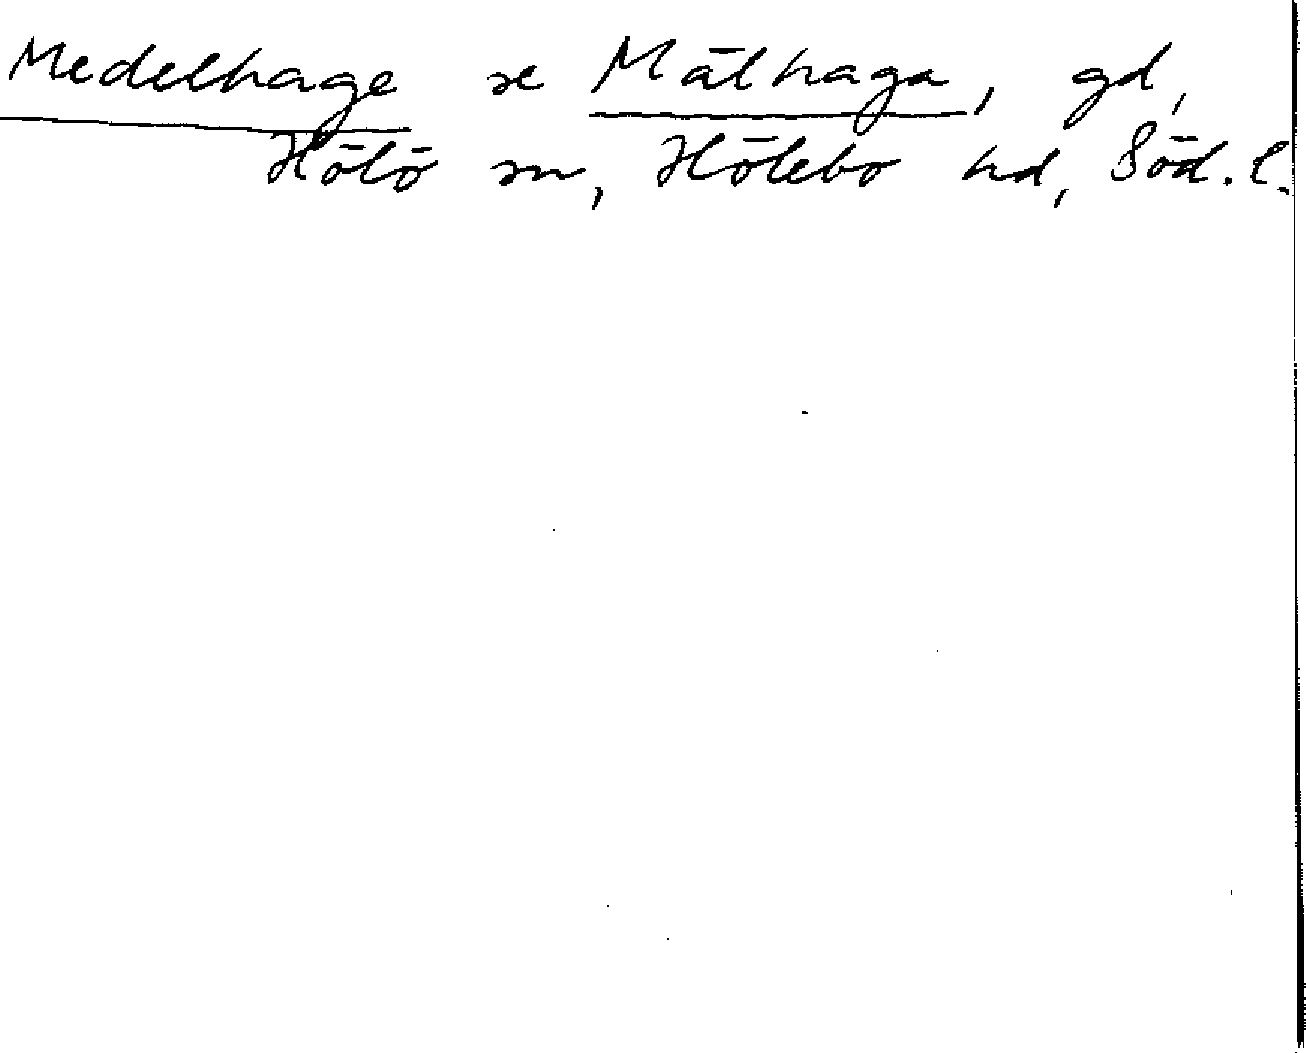 Medelhage se Mälhaga, gd,
Hölö sn, Hölebo hd, Söd. l.